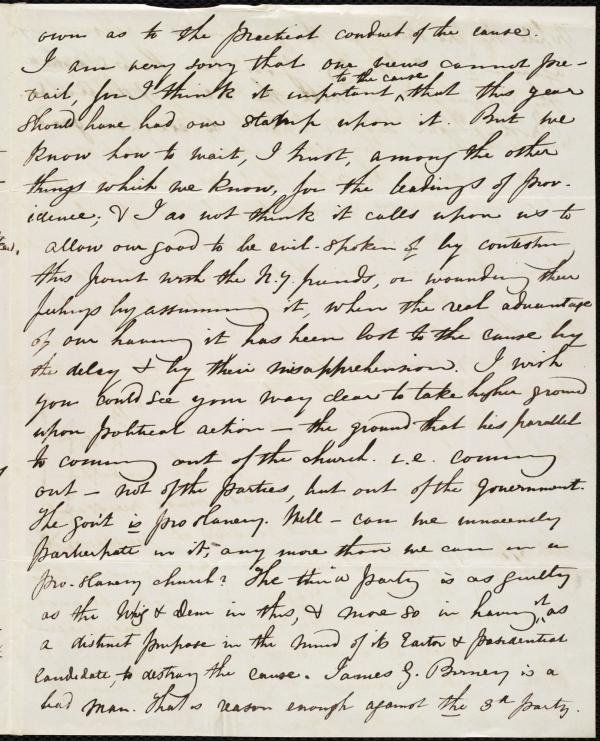 own as to the practical conduct of the cause.
I am very sorry that our views cannot pre-
vail, for I think it important to the cause that this year
should have had our stamp upon it. But we
know how to wait, I trust, among the other
things which we know, for the leadings of Prov-
idence; & I do not think it calls upon us to
allow our good to be evil-spoken of by contesting
this point with the N.Y. friends, or wounding their
feelings by assuming it, when the real advantage
of our having it has been lost to the cause by
the delay & by their misapprehension. I wish
you could see your way clear to take higher ground
upon political action - the ground that lies parallel
to coming out of the church. i.e. coming
out - not of the parties, but out of the government.
The gov't is pro slavery. Well - can we innocently
participate in it, any more than we can in a
pro-slavery church? The third party is as guilty
as the Whig & Dem in this, & more so in having it, as
a distinct purpose in the mind of its Editor & presidential
candidate, to destroy the cause. James G. Birney is a
bad man. That is reason enough against the 3d party.